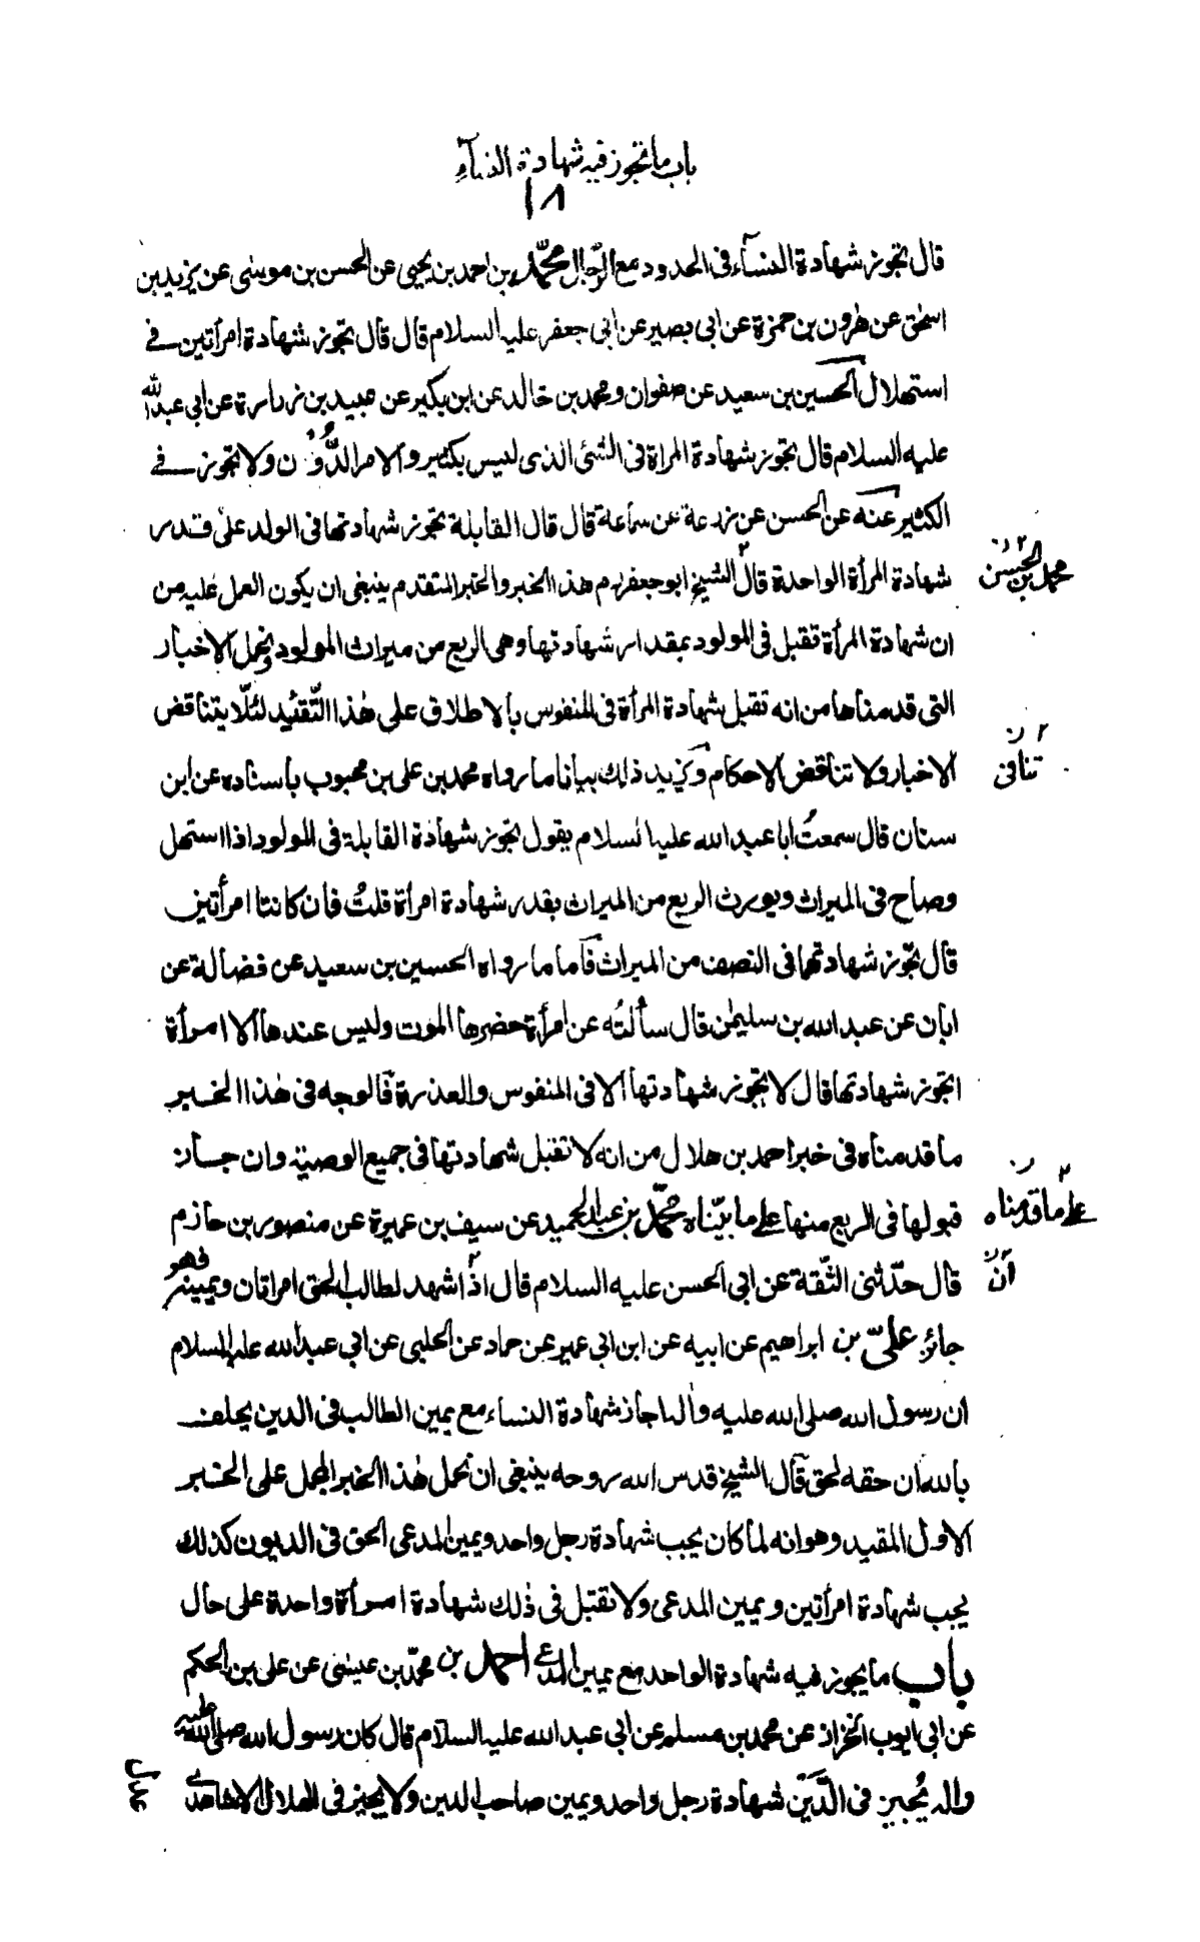 باب ما تجوز فيه شهادة النسآء
١٨
قال تجوز شهادة النسآء فى الحدود مع الرّجال محمّد بن احمد بن يحيى عن الحسن بن موسى عن يزيد بن
اسحٰق عن هٰرون بن حمزة عن ابى بصير عن ابى جعفر عليه السلام قال قال تجوز شهادة امرأتين فى
استهلال الحسين بن سعيد عن صفوان ومحمد بن خالد عن ابن بكير عن عبيد بن زرارة عن ابى عبدالله
عليه السلام قال تجوز شهادة المراة فى الشئ الذى ليس بكثير والامر الدُّوْن ولا تجوز فى
الكثير عنه عن الحسن عن زرعة عن سماعة قال قال القابلة تجوز شهادتها فى الولد على قدر
شهادة المرأة الواحدة قال الشيخ ابو جعفر ره هذا الخبر والخبر المتقدم ينبغى ان يكون العمل عليه من
محمد بن الحسن ٢ ن
ان شهادة المرأة تقبل فى المولود بمقدار شهادتها وهى الربع من ميراث المولود ونحمل الاخبار
التى قدمناها من انه تقبل شهادة المرأة فى المنفوس بالاطلاق على هٰذا التّقئيد لئلّا يتناقض
الاخبار ولا تتناقض الاحكام وَيزيد ذلك بيانا ما رواه محمد بن على بن محبوب باسناده عن ابن
تنافى ٢ ن
سنان قال سمعتُ ابا عبد الله عليه السلام يقول تجوز شهادة القابلة فى المولود اذا استهل
وصاح فى الميراث ويورث الربع من الميراث بقدر شهادة امرأة قلتُ فان كانتا امرأتين
قال تجوز شهادتهما فى النصف من الميراث فَاما ما رواه الحسين بن سعيد عن فضالة عن
ابان عن عبد الله بن سليمٰن قال سألتُه عن امرأة حضرها الموت وليس عندها الا امرأة
اتجوز شهادتها قال لا تجوز شهادتها الا فى المنفوس والعذرة فَالوجه فى هٰذا الخبر
ما قدمناه فى خبر احمد بن هلال من انه لا تقبل شهادتها فى جميع الوصية وان جاز
قبولها فى الربع منها على ما بيّناه محمّد بن عبد الحميد عن سيف بن عميرة عن منصور بن حازم
على ما قدمناه ٢ ن
قال حدّثنى الثّقة عن ابى الحسن عليه السلام قال اذا اشهد لطالب الحق امراتان ويمينه فهو
أنّ ن
جائز علىّ بن ابراهيم عن ابيه عن ابن ابى عمير عن حماد عن الحلبى عن ابى عبد الله عليه السلام
ان رسول الله صلى الله عليه واله اجاز شهادة النساء مع يمين الطالب فى الدين يحلف
بالله ان حقه لحق قَال الشيخ قدس الله روحه ينبغى ان نحمل هٰذا الخبر المجمل على الخبر
الاول المقيد وهو انه لما كان يجب شهادة رجل واحد ويمين المدعى الحق فى الديون كذلك
يجب شهادة امرأتين ويمين المدعى ولا تقبل فى ذٰلك شهادة امرأة واحدة على حال
باب ما يجوز فيه شهادة الواحد مع يمين المدعى احمد بن محمّد بن عيسى عن على بن الحكم
عن ابى ايوب الخزاز عن محمد بن مسلم عن ابى عبد الله عليه السلام قال كان رسول الله صلى الله عليه
واله يُجيز فى الدَّيْن شهادة رجل واحد ويمين صاحب الدين ولا يجيز فى الهلال الا شاهدى
عدل